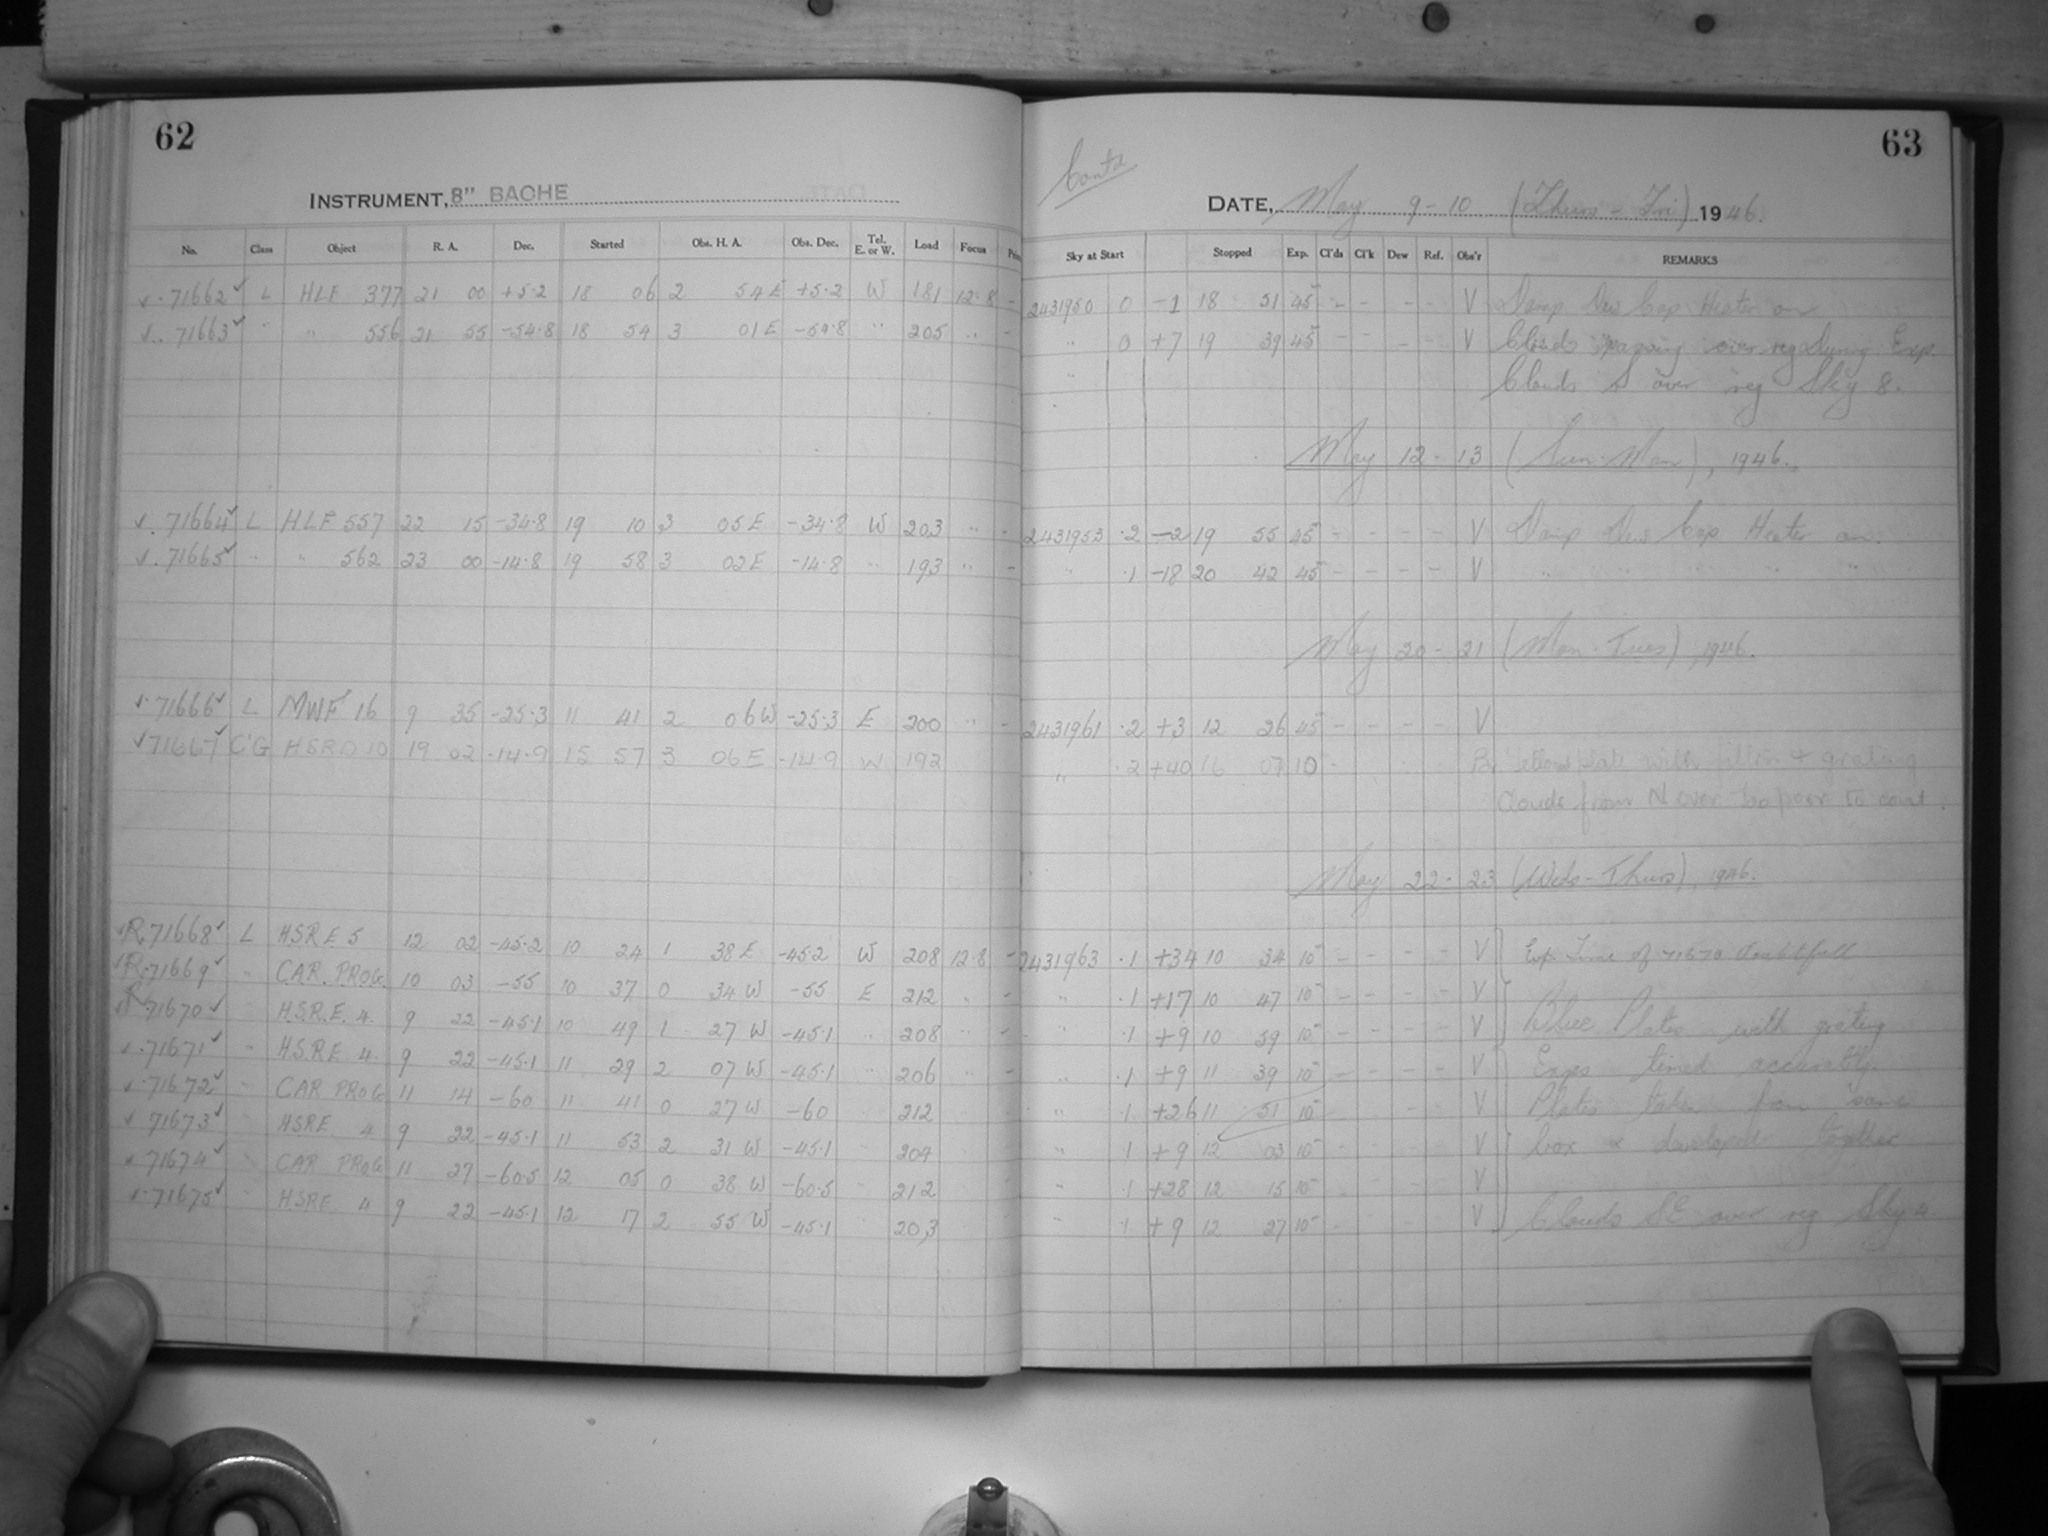 62
INSTRUMENT, 8" BACHE
No. Class Object R. A. Dec. Started Obs. H. A. Obs. Dec. Tel. E. or W. Load Focus
71662 L HLF 377 21 00 +5.2 18 06 2 54 E +5.2 W 181 12.8 -
71663 " " 556 21 55 -54.8 18 54 3 01 E -54.8 " 205 " -
71664 L HLF 557 22 15 -34.8 19 10 3 05 E -34.8 W 203 " -
71665 " " 562 23 00 -14.8 19 58 3 02 E -14.8 " 193 " -
71666 L MWF 16 9 35 -25.3 11 41 2 06 W -25.3 E 200 " -
71667 C'G HSRD 10 19 02 -14.9 15 57 3 06 E -14.9 W 192
R. 71668 L HSRE 5 12 02 -45.2 10 24 1 38 E -45.2 W 208 12.8 -
R. 71669 " CAR. PROG. 10 03 -55 10 37 0 34 W -55 E 212 " -
R 71670 HSRE. 4. 9 22 -45.1 10 49 1 27 W -45.1 " 208 " -
71671 " HSRE 4. 9 22 -45.1 11 29 2 07 W -45.1 " 206 " -
71672 " CAR PROG 11 14 -60 11 41 0 27 W -60 212
71673 HSRE 4 9 22 -45.1 11 53 2 31 W -45.1 204
71674 CAR PROG 11 27 -60.5 12 05 0 38 W -60.5 212
71675 HSRE 4 9 22 -45.1 12 17 2 55 W -45.1 203
63
Contd
DATE, May 9-10 (Thurs - Fri) 1946.
Sky at Start Stopped Exp. Cl'ds Cl'k Dew Ref. Obs'r REMARKS
2431950 0 -1 18 51 45 - - - - V Damp Dew Cap Heater on
" 0 +7 19 39 45 - - - - V Clouds passing over reg During Exp.
Clouds S over reg Sky 8.
May 12-13 (Sun-Mon), 1946.
2431953 .2 -2 19 55 45 - - - - V Damp Dew Cap Heater on.
" .1 -18 20 42 45 - - - - V " " " " "
May 20-21 (Mon-Tues), 1946.
2431961 .2 +3 12 26 45 - - - - V
" .2 +40 16 07 10 - Yellow plate with filter & grating
Clouds from N over too poor to cont.
May 22-23 (Weds-Thurs), 1946.
2431963 .1 +34 10 34 10 - - - - V Exp. Time of 71670 doubtfull
" .1 +17 10 47 10 - - - - V
" .1 +9 10 59 10 - - - - V Blue Plates with grating
" .1 +9 11 39 10 - - - - V Exps timed accurately.
" .1 +26 11 51 10 - - - V Plates taken from same
" .1 +9 12 03 10 - - - - V box & developed together
" .1 +28 12 15 10 - - - - V
" .1 +9 12 27 10 - - - - V Clouds SE over reg Sky 4.